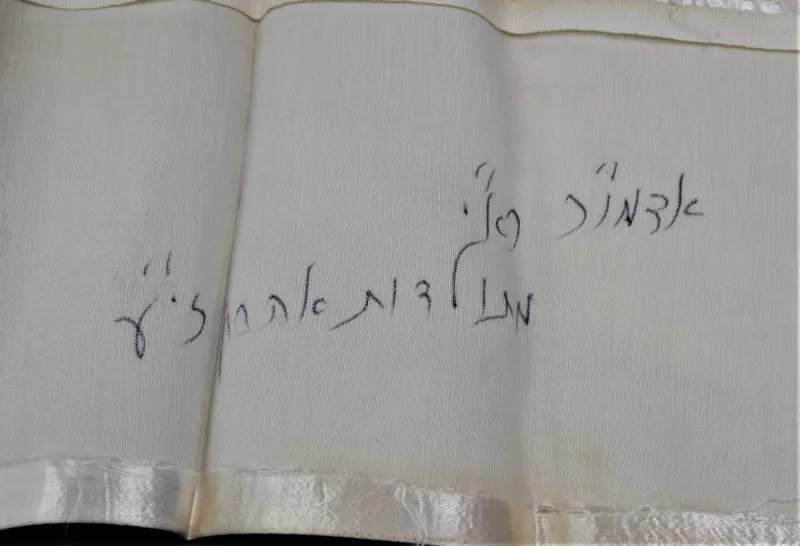 אדמו"ר
מתולדות אהרן זי"ע